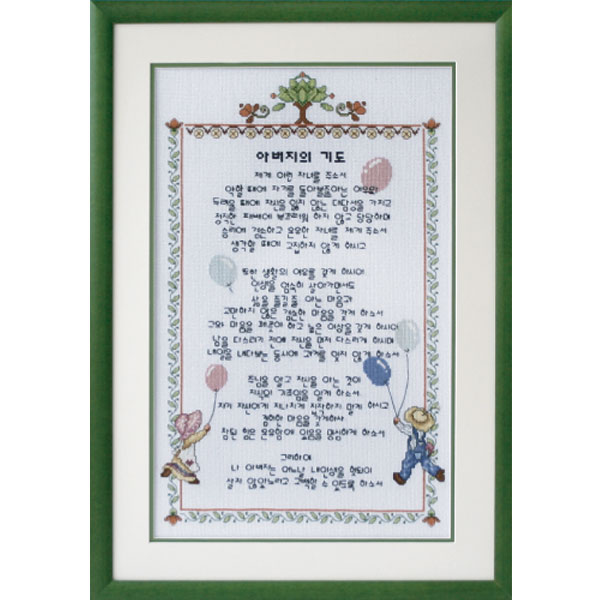 아버지의 기도
제게 이런 자녀를 주소서
약할 때에 자기를 돌아볼줄아는 여유와
두려울 때에 자신을 잃지 않는 대담성을 가지고
정직한 패배에 부끄러워 하지 않고 당당하며
승리에 겸손하고 온유한 자녀를 제게 주소서
생각할 때에 고집하지 않게 하시고
또한 생활의 여유를 갖게 하시어
인생을 엄숙히 살아가면서도
삶을 즐길줄 아는 마음과
교만하지 않은 겸손한 마음을 갖게 하소서
그의 마음을 깨끗이 하고 높은 이상을 갖게 하시어
남을 다스리기 전에 자신을 먼저 다스리게 하시며
내일을 내다보는 동시에 과거를 잊지 않게 하소서
주님을 알고 자신을 아는 것이
지식의 기초임을 알게 하소서
자기 자신에게 지나치게 집착하지 말게 하시고
겸허한 마음을 갖게하사
참된 힘은 온유함에 있음을 명심하게 하소서
그리하여
나 아버지는 어느날 내인생을 헛되이
살지 않았노라고 고백할 수 있도록 하소서